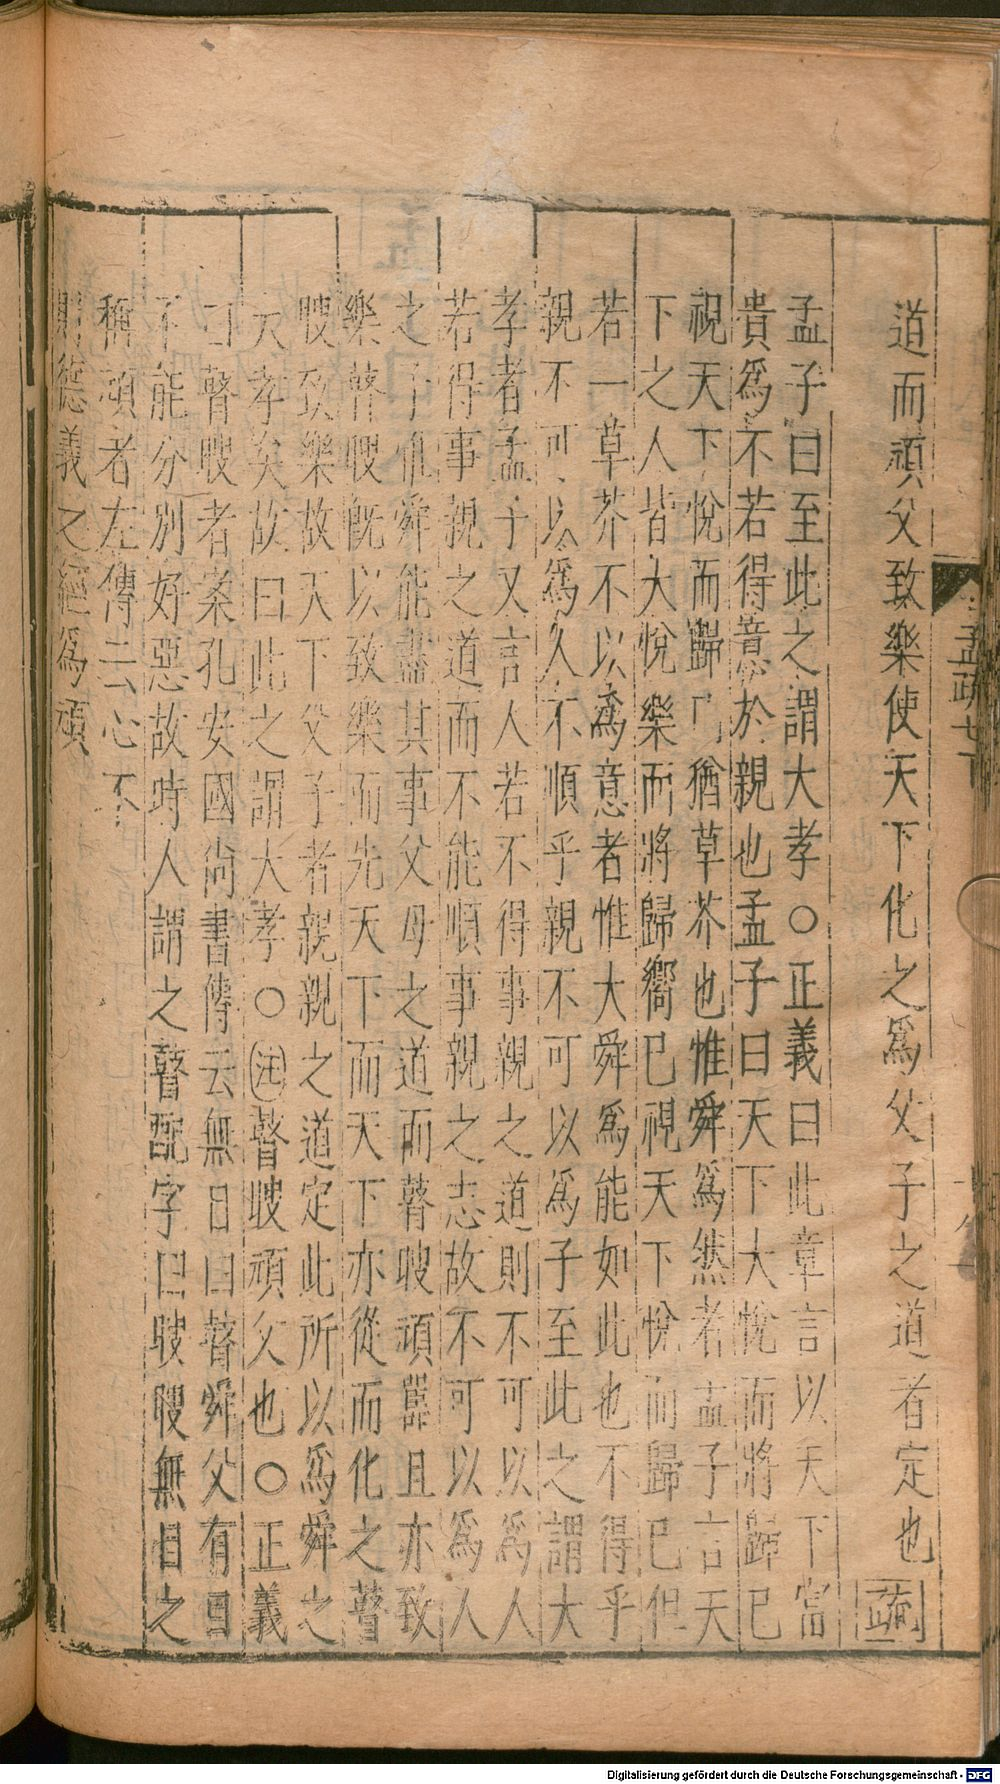 道而頑父致樂使天下化之爲父子之道者定也疏
孟子曰至此之謂大孝○正義曰此章言以天下富
貴爲不若得意於親也孟子曰天下大悅而將歸已
視天下悅而歸 猶草芥也惟舜爲然者孟子言天
下之人皆大悅樂而將歸嚮已視天下悅而歸已但
若一草芥不以爲意者惟大舜爲能如此也不得乎
親不可以爲人不順乎親不可以爲子至此之謂大
孝者孟子又言人若不得事親之道則不可以爲人
若得事親之道而不能順事親之志故不可以爲人
之子惟舜能盡其事父母之道而瞽瞍頑嚚且亦致
樂瞽瞍旣以致樂而先天下而天下亦從而化之瞽
瞍致樂故天下父子者親親之道定此所以爲舜之
大孝矣故曰此之謂大孝○注瞽瞍頑父也○正義
曰瞽瞍者案孔安國尚書傳云無目曰瞽舜父有目
不能分別好惡故時人謂之瞽配字曰瞍瞍無目之
稱頑者左傳云心不
則德義之經爲頑
孟疏七下